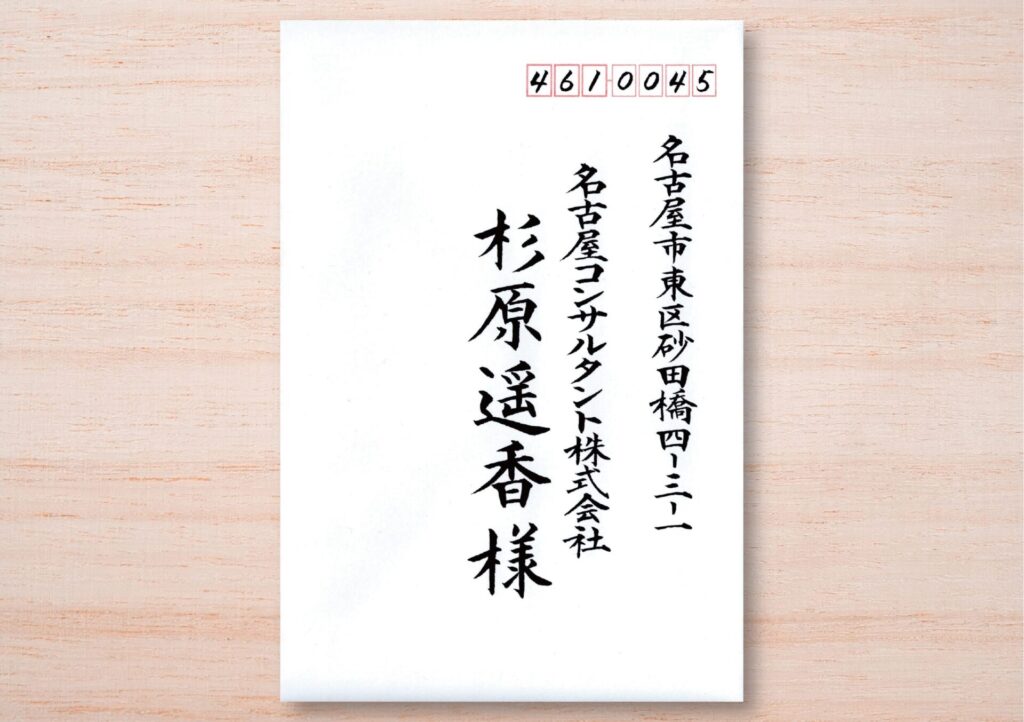 4610045
名古屋市東区砂田橋四ー三ー一
名古屋コンサルタント株式会社
杉原遥香様